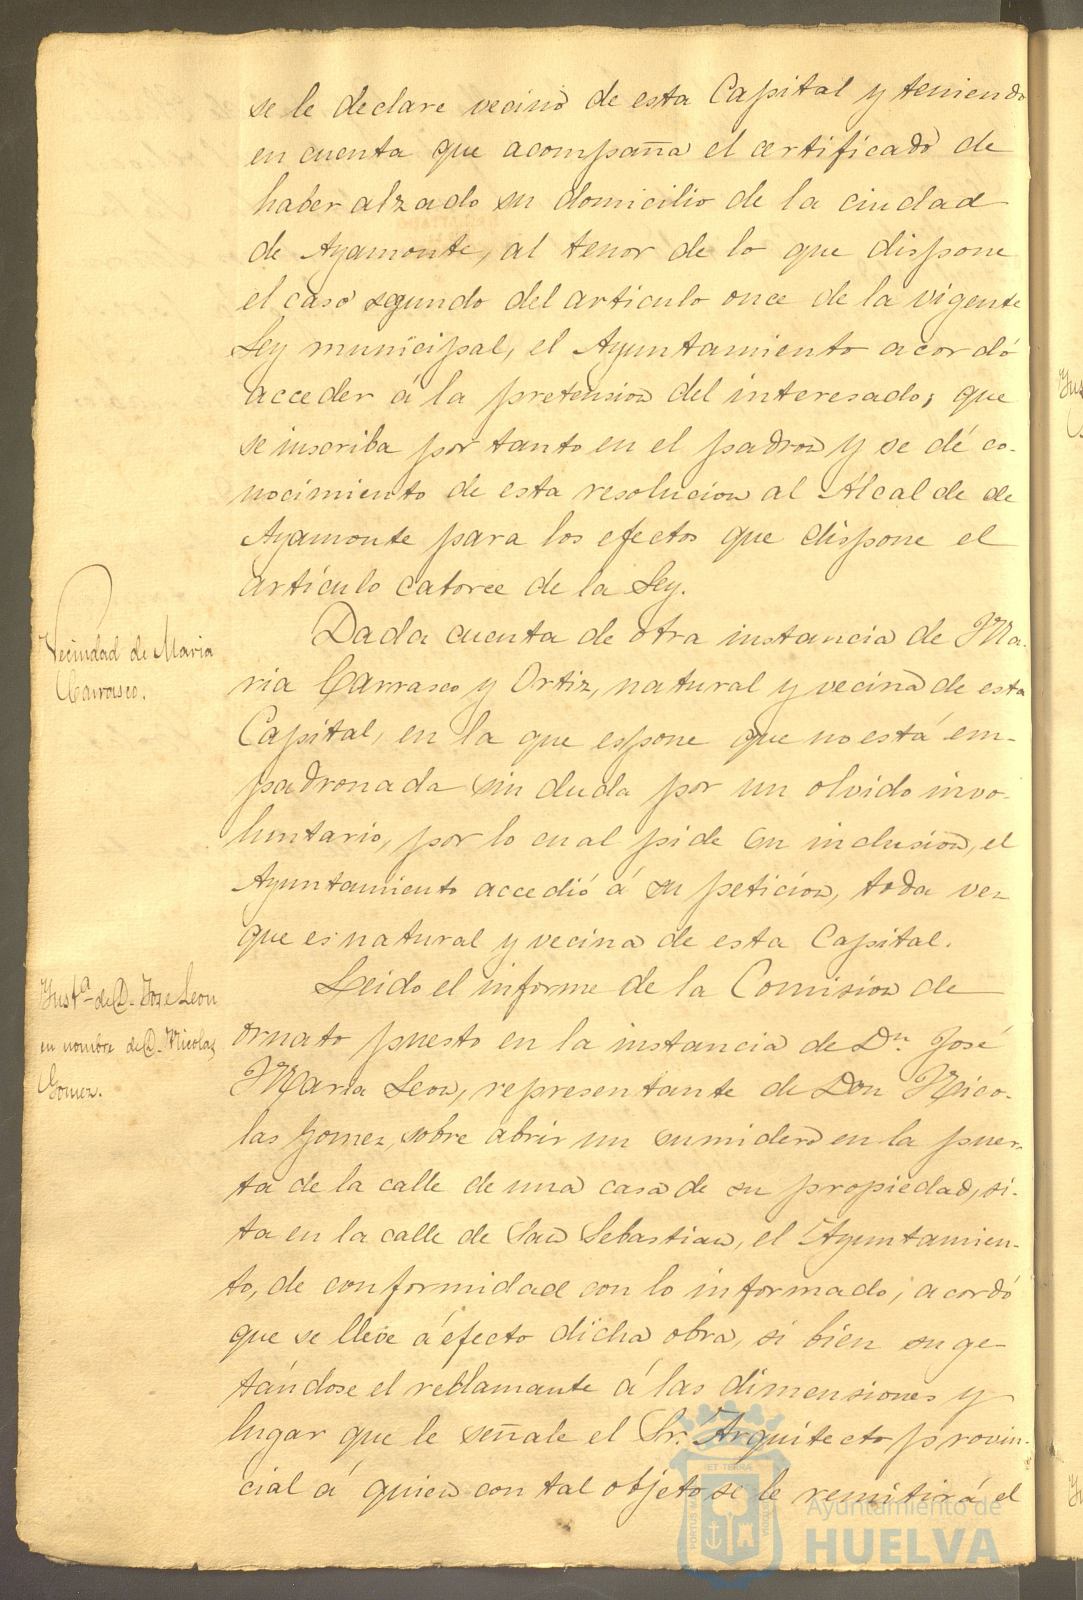 se le declare vecino de esta Capital y teniendo
en cuenta que acompaña el certificado de
haber alzado su domicilio de la ciudad
de Ayamonte, al tenor de lo que dispone
el caso segundo del articulo once de la vigente
Ley municipal, el Ayuntamiento acordó
acceder á la pretension del interesado; que
se inscriba por tanto en el padron y se dé co-
nocimiento de esta resolucion al Alcalde de
Ayamonte para los efectos que dispone el
artículo catorce de la Ley.
Vecindad de Maria
Carrasco.
Dada cuenta de otra instancia de Ma-
ria Carrasco y Ortiz, natural y vecina de esta
Capital, en la que espone que no está em-
padronada sin duda por un olvido invo-
luntario, por lo cual pide su inclusion, el
Ayuntamiento accedió á su peticion, toda vez
que es natural y vecina de esta Capital.
Instª de D. Jose Leon
en nombre de D. Nicolas
Gomez.
Leido el informe de la Comision de
ornato puesto en la instancia de Dn José
Maria Leon, representante de Don Nico-
las Gomez, sobre abrir un sumidero en la puer-
ta de la calle de una casa de su propiedad, si-
ta en la calle de San Sebastian, el Ayuntamien-
to, de conformidad con lo informado, acordó
que se lleve á efecto dicha obra, si bien suge-
tándose el reclamante á las dimensiones y
lugar que le señale el Sr. Arquitecto provin-
cial á quien con tal objeto se le remitirá el
PORTUS MARIS ET TERRÆ CUSTODIA
Ayuntamiento de
HUELVA